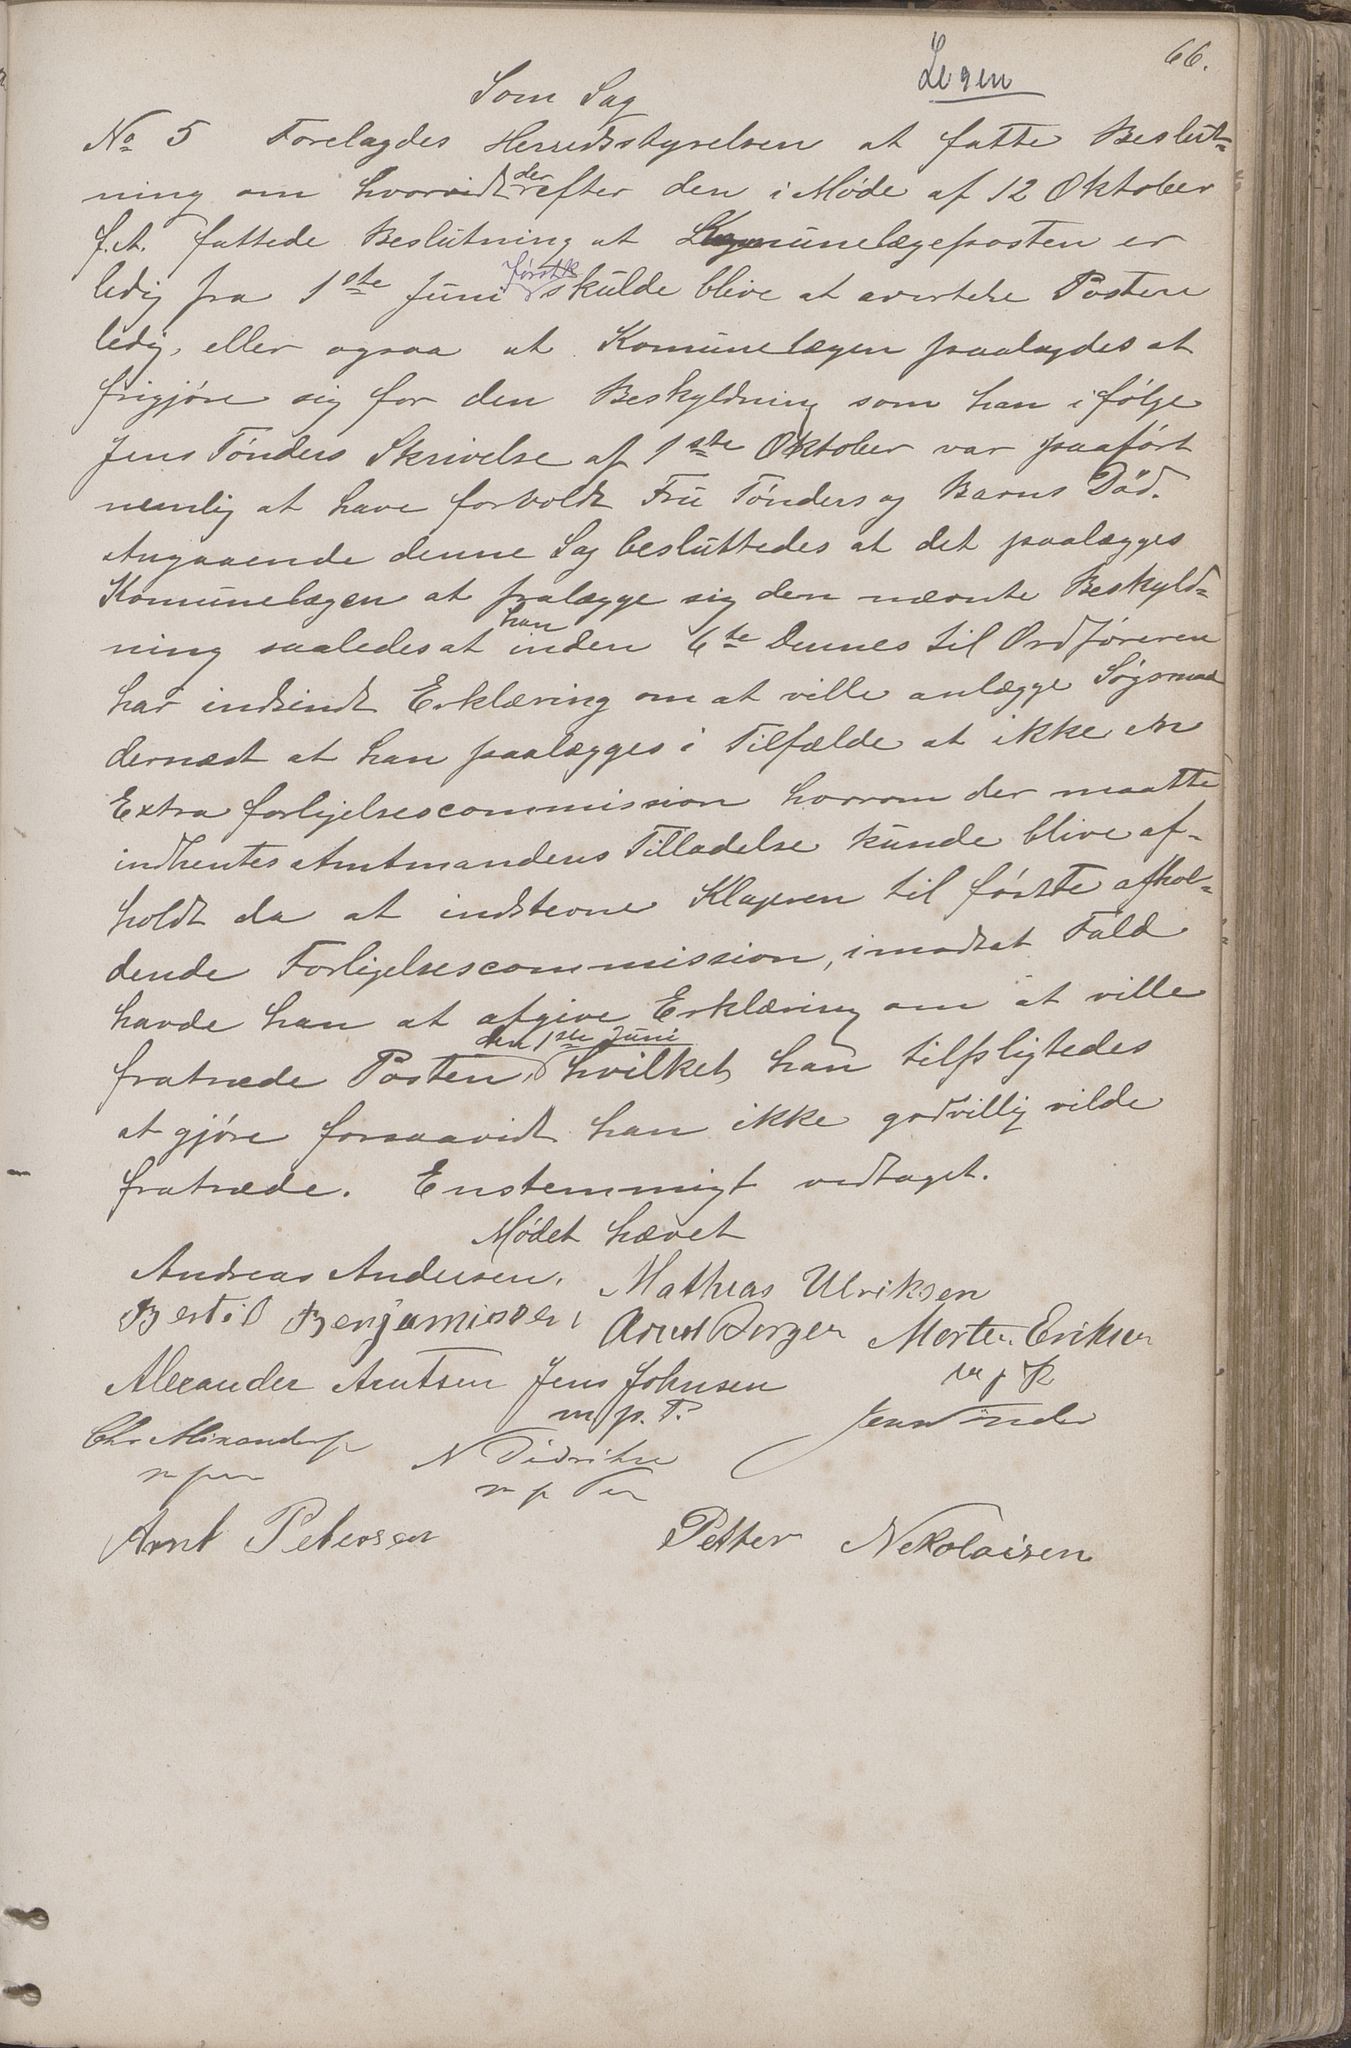 66.
Legen
Som Sag
No 5 Forelagdes Herredsstyrelsen at fatte Beslut-
ning om hvorvidt der efter den i Møde af 12 Oktober
f.A. fattede Beslutning at Komunelægeposten er
ledig fra 1ste Juni førstk skulde blive at avertere Posten
ledig, eller ogsaa at Komunelægen paalagdes at
frigjøre sig for den Beskyldning som han ifølge
Jens Tønders Skrivelse af 1ste Oktober var paaført
nemlig at have forvoldt Fru Tønders og Barns Død.
Angaaende denne Sag besluttedes at det paalægges
Komunelægen at fralægge sig den nævnte Beskyld-
ning saaledes at han inden 6te Dennes til Ordføreren
har indsendt Erklæring om at ville anlægge Søgsmaal
dernæst at han paalægges i Tilfælde at ikke en
Extra forligelsescommission hvorom der maatte
indhentes Amtmandens Tilladelse kunde blive af-
holdt da at indstevne Klageren til første afhol-
dende Forligelsescommission, i modsat Fald
havde han at afgive Erklæring om at ville
fratræde Posten den 1ste Juni hvilket han tilpligtedes
at gjøre forsaavidt han ikke godvillig vilde
fratræde. Enstemmigt vedtaget.
Mødet hævet
Andreas Andersen. Mathias Ulriksen
Bertil Benjaminsen Morten Eriksen
m p P
Alexander Arntsen Jens Johnsen
m p. P.
Jens Tønder
N Didriksen
m p
Arnt Petersen Petter Nekolaisen